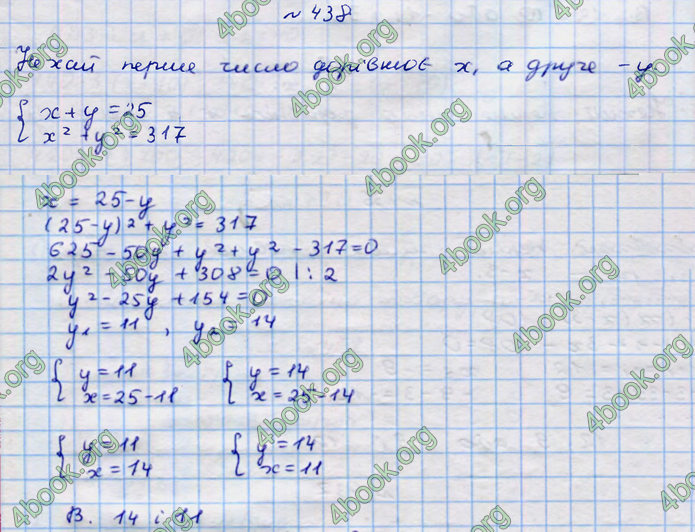 № 438
Нехай перше число дорівнює x, а друге – y.
{ x + y = 25
x² + y² = 317
x = 25 - y
(25-y)² + y² = 317
625 - 50y + y² + y² - 317 = 0
2y² - 50y + 308 = 0 | : 2
y² - 25y + 154 = 0
y₁ = 11 , y₂ = 14
{ y = 11 { y = 14
x = 25 - 11 x = 25 - 14
{ y = 11 { y = 14
x = 14 x = 11
В. 14 і 11
4book.org